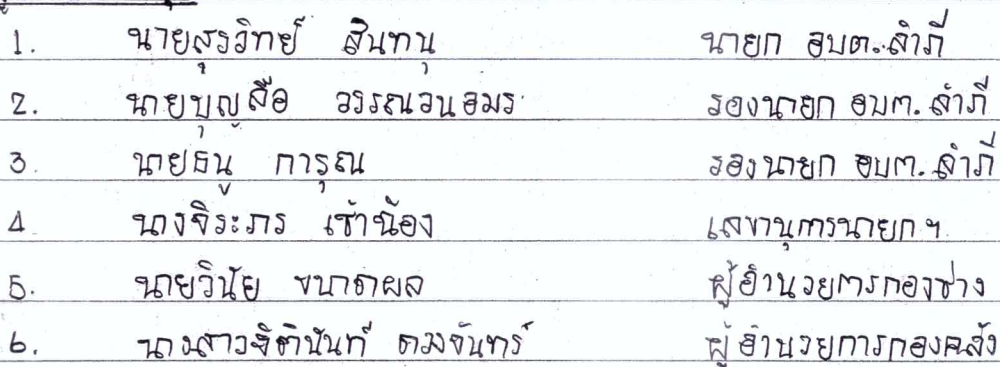 1. นายสุรวิทย์ สินทนุ นายก อบต.ลำภี
2. นายบุญลือ วรรณวนอมร รองนายก อบต.ลำภี
3. นายธนู การุณ รองนายก อบต.ลำภี
4 นางจิระภร เช้าน้อง เลขานุการนายกฯ
5. นายวินัย ขนาดผล ผู้อำนวยการกองช่าง
6. นางสาวฐิตินันท์ ดวงจันทร์ ผู้อำนวยการกองคลัง